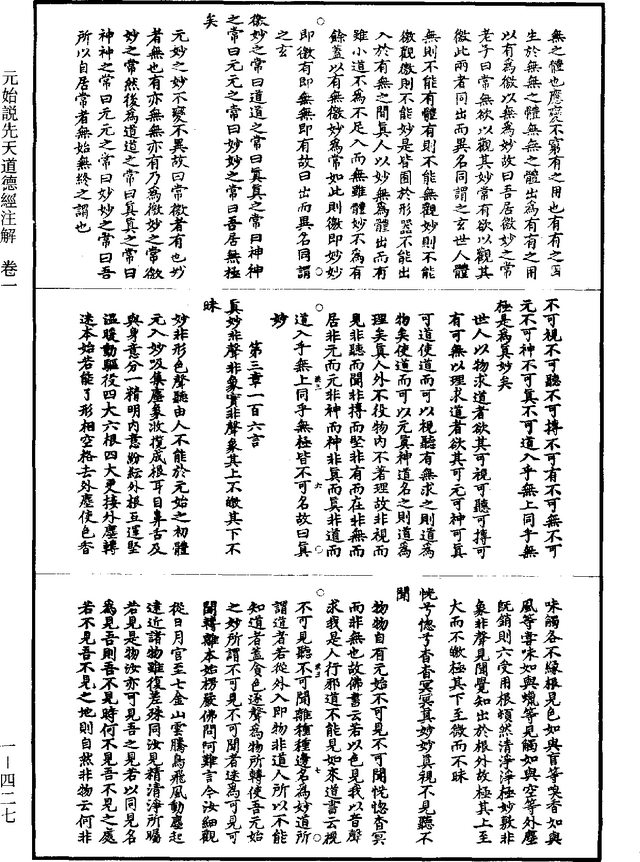 無之體也應變不窮有之用也有有之因
生於無無之體無無之體出為有有之用
以有為徼以無為妙故曰吾居徼妙之常
老子曰常無欲以觀其妙常有欲以觀其
徼此兩者同出而異名同謂之玄世人體
無則不能有體有則不能無觀妙則不能
徼觀徼則不能妙是皆囿於形器不能出
入於有無之間真人以妙無為體出而有
雖小道不為不足入而無雖體妙不為有
餘蓋以有無徼妙為常如此則徼即妙妙
即徼有即無無即有故曰出而異名同謂
之玄
徼妙之常曰道道之常曰真真之常曰神神
之常曰元元之常曰妙妙之常曰吾居無極
矣
元妙之妙不變不異故曰常徼者有也妙
者無也有亦無無亦有乃為徼妙之常徼
妙之常然後為道道之常曰真真之常曰
神神之常曰元元之常曰妙妙之常曰吾
所以自居常者無始無終之謂也
不可視不可聽不可摶不可有不可無不可
元不可神不可真不可道入乎無上同乎無
極是為真妙矣
世人以物求道者欲其可視可聽可摶可
有可無以理求道者欲其可元可神可真
可道使道而可以視聽有無求之則道為
物矣使道而可以元真神道名之則道為
理矣真人外不役物內不著理故非視而
見非聽而聞非摶而堅非有而在非無而
居非元而元非神而神非真而真非道而
道入乎無上同乎無極皆不可名故曰真
妙
第三章一百六言
真妙非聲非象實非聲象其上不皦其下不
昧
妙非形色聲聽由人不能於元始之初體
元入妙吸集塵象收復成根耳目鼻舌及
與身意分一精明內意紛紜外根互還堅
溫暖動驅役四大六根四大更接外塵轉
迷本始若能了形相空格去外塵使色香
味觸各不緣根見色如與盲等嗅香如與
風等尋味如與蠟等見觸如與空等外塵
既銷則六受用根頓然清淨淨極妙斁非
象非聲見聞覺知出於根外故極其上至
大而不皦極其下至微而不昧
恍兮惚兮杳杳冥冥其妙妙真視不見聽不
聞
物物自有元始不可見不可聞恍惚杳冥
而非無也故佛書云若以色見我以音聲
求我是人行邪道不能見如來道書云視
不可見聽不可聞離種種邊名為妙道所
謂道者若從外入即物非道人所以不能
知道者蓋貪色逐聲為物所轉使吾元始
之妙所謂不可見不可聞者迷為可見可
聞轉離本始楞嚴佛問阿難言令汝細觀
從日月宮至七金山雲騰鳥飛風動塵起
遠近諸物雖復差殊同汝見精清淨所矚
若見是物汝亦可見吾之見若以同見名
為見吾則吾不見時何不見吾不見之處
若不見吾不見之地則自然非物云何非
元始說先天道德經注解 卷一
一-四二七